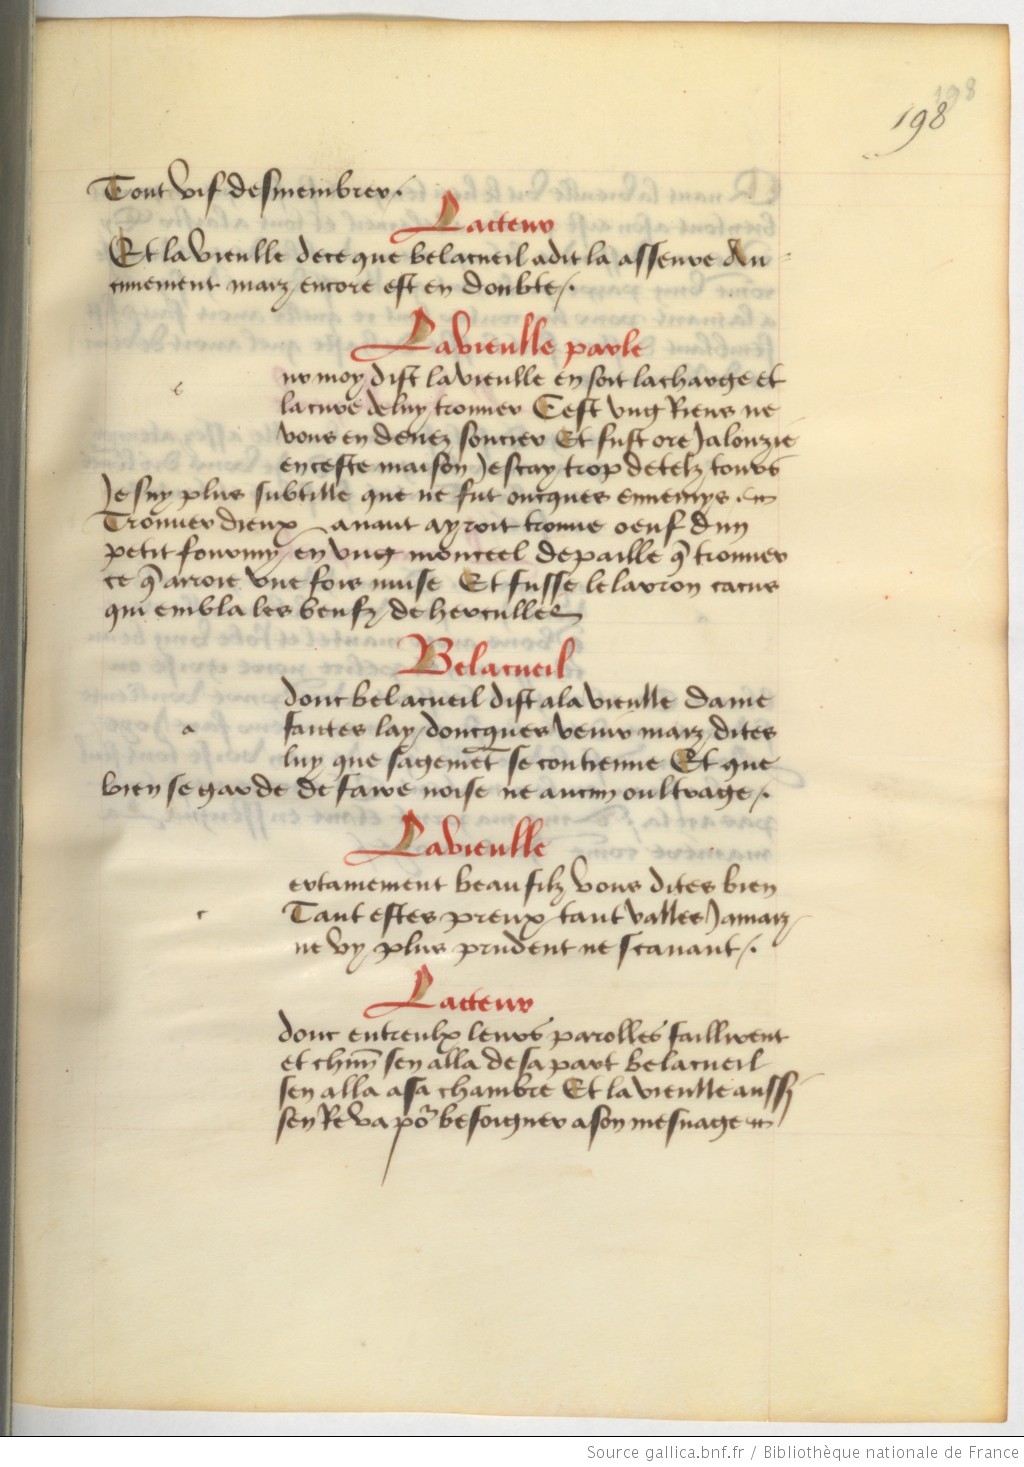 198
198
Tout vif desmembrer.
Lacteur
Et la vieulle de ce que belacueil a dit la asseure Au
cunement maiz encore est en doubte.
La vieulle parle
e
ur moy dist la vieulle en soit la charge et
la cure de luy trouver Cest ung Riens ne
vous en devez soucier Et fust ore Jalouzie
en ceste maison Je scay trop de telz tours
Je suy plus subtille que ne fut oncques ennemys
Trouver dieux avant ayroit trouve oeuf dun
petit fourmy en ung monceel de paille q̃ trouver
ce q̃ arroie une fois muse Et fusse le larron cacus
qui embla les beufz de hercules
Belacueil
a
donc belacueil dist a la vieulle Dame
faites lay doncques venir maiz dites
luy que sagemẽt se contienne Et que
bien se garde de faire noise ne aucun oultrage.
La vieulle
c
ertainement beau filz vous dites bien
Tant estes preux tant valles Jamaiz
ne vy plus prudent ne scavant.
Lacteur
donc entreulx leurs parolles faillirent
et chũn sen alla de sa part belacueil
sen alla a sa chambre Et la vieulle aussy
sen Reva po᷑ besoigner a son mesnage
Source gallica.bnf.fr / Bibliothèque nationale de France